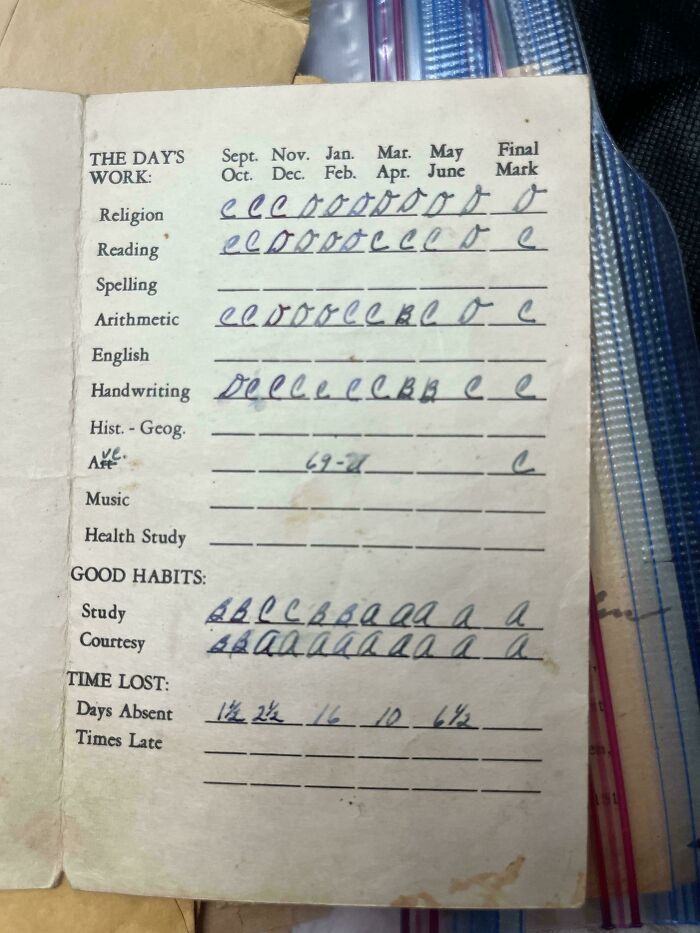 THE DAY'S WORK: Sept. Oct. Nov. Dec. Jan. Feb. Mar. Apr. May June Final Mark
Religion C C C D D D D D D D D
Reading C C D D D D C C C D C
Spelling
Arithmetic C C D D D C C B C D C
English
Handwriting D C C C C C C B B C C
Hist. - Geog.
Art ve. 69- C
Music
Health Study
GOOD HABITS:
Study B B C C B B a a a a a
Courtesy B B a a a a a a a a a
TIME LOST:
Days Absent 1½ 2½ 16 10 6½
Times Late